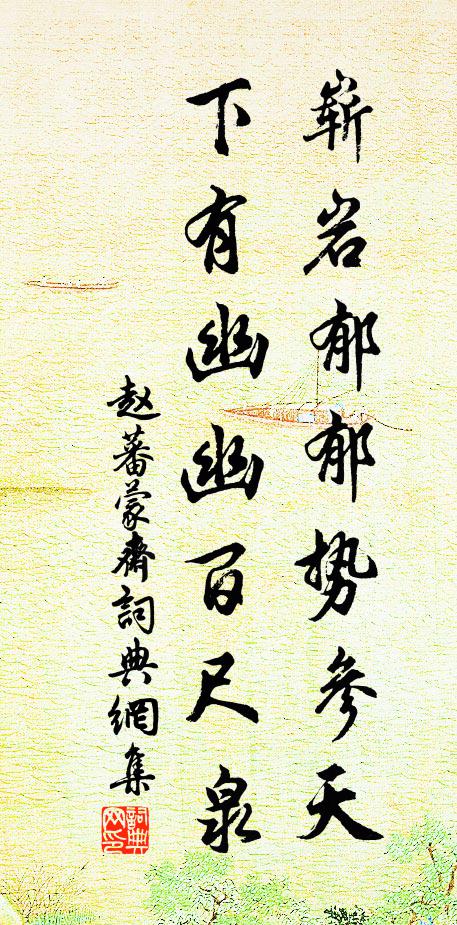 崭岩郁郁势参天
下有幽幽百尺泉
赵蕃蒙齋詞典網集
詞典网印